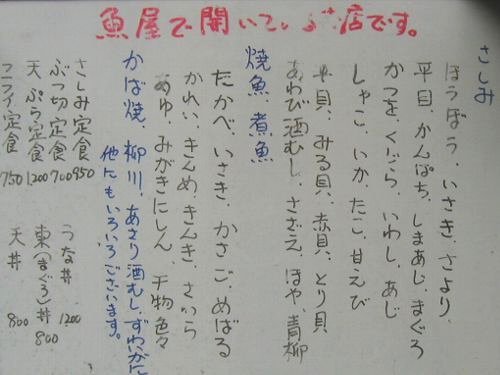 魚屋で開いている店です。
さしみ
ほうぼう、いさき、さより、
平目、かんぱち、しまあじ、まぐろ
かつを、くじら、いわし、あじ
しゃこ、いか、たこ、甘えび
平貝、みる貝、赤貝、とり貝
あわび酒むし、さざえ、ほや、青柳
焼魚、煮魚
たかべ、いさき、かさご、めばる
かれい、きんめ、きんき、さいら
あゆ、みがきにしん、干物色々
かば焼、柳川、あさり酒むし、ずわいがに
他にもいろいろございます。
さしみ定食 950
ぶつ切定食 700
天ぷら定食 1200
フライ定食 750
うな丼 1200
東(まぐろ)丼 800
天丼 800